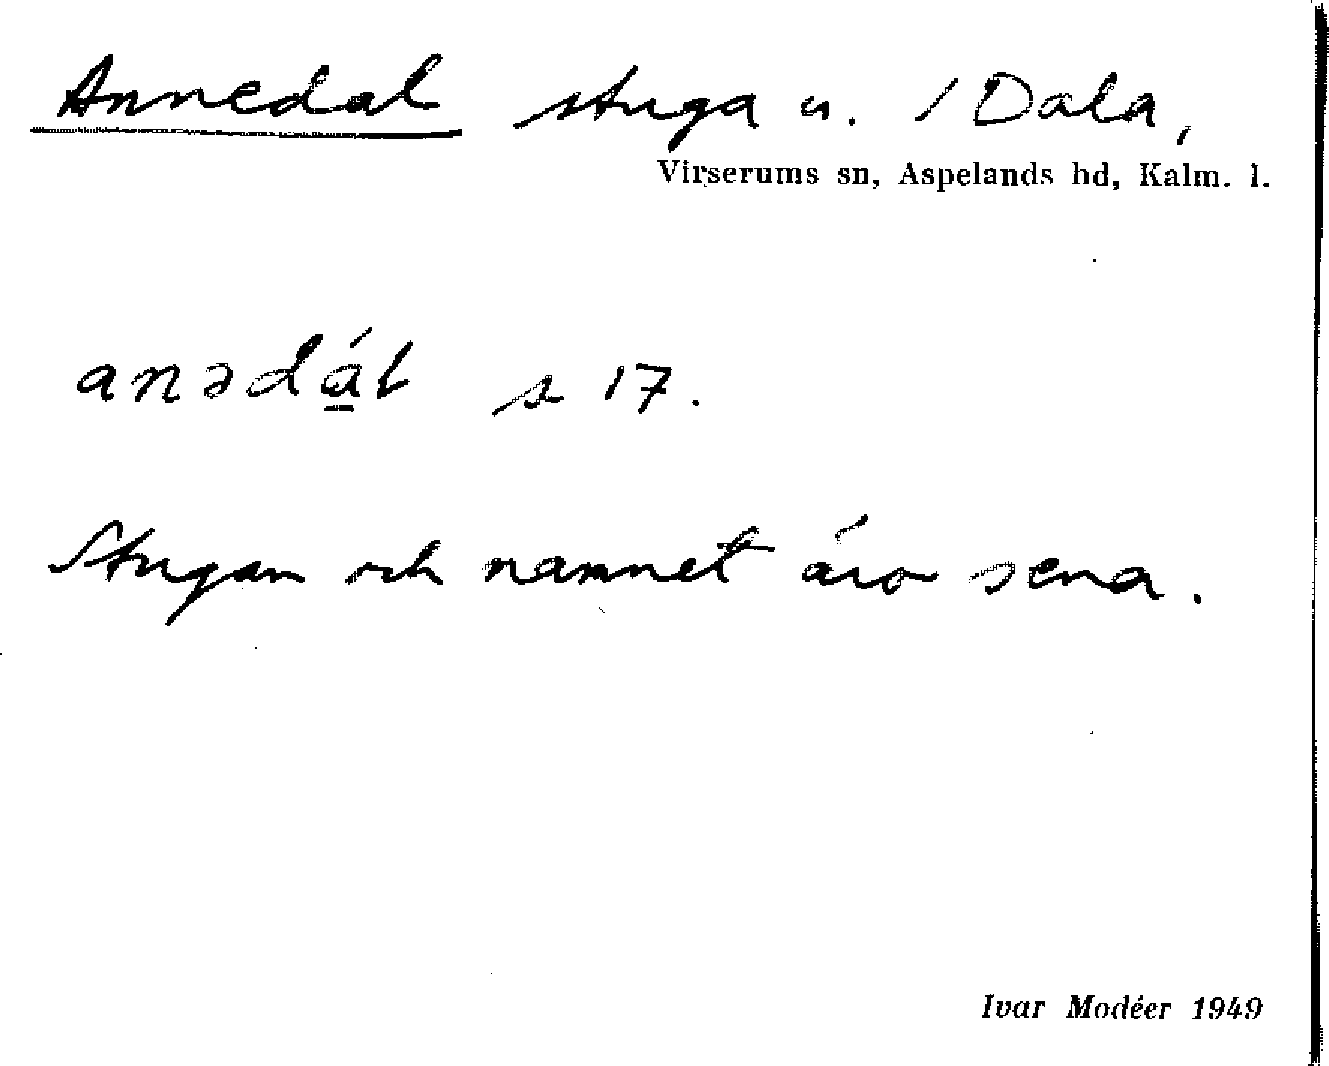 Annedal stuga u. /Dala,
Virserums sn, Aspelands hd, Kalm. l.
anədá̱l s 17.
Stugan och namnet äro sena.
Ivar Modéer 1949